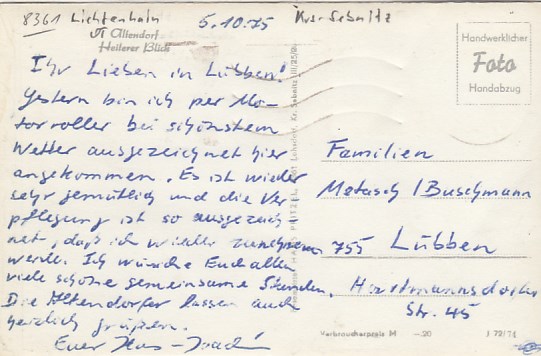 8361 Lichtenhain 5.10.75 Kreis Sebnitz
OT Altendorf
Heiterer Blick
Ihr Lieben in Lübben!
Gestern bin ich per Mo-
torroller bei schönstem
Wetter ausgezeichnet hier
angekommen. Es ist wieder
sehr gemütlich und die Ver
pflegung ist so ausgezeich
net, daß ich wieder zunehmen
werde. Ich wünsche Euch allen
viele schöne gemeinsame Stunden.
Die Altendorfer lassen auch
herzlich grüßen.
Euer Hans-Joach
Handwerklicher
Foto
Handabzug
Familien
Metasch / Buschmann
755 Lübben
Hartmannsdorfer
Str. 45
Verbraucherpreis M -.20 J 72/74